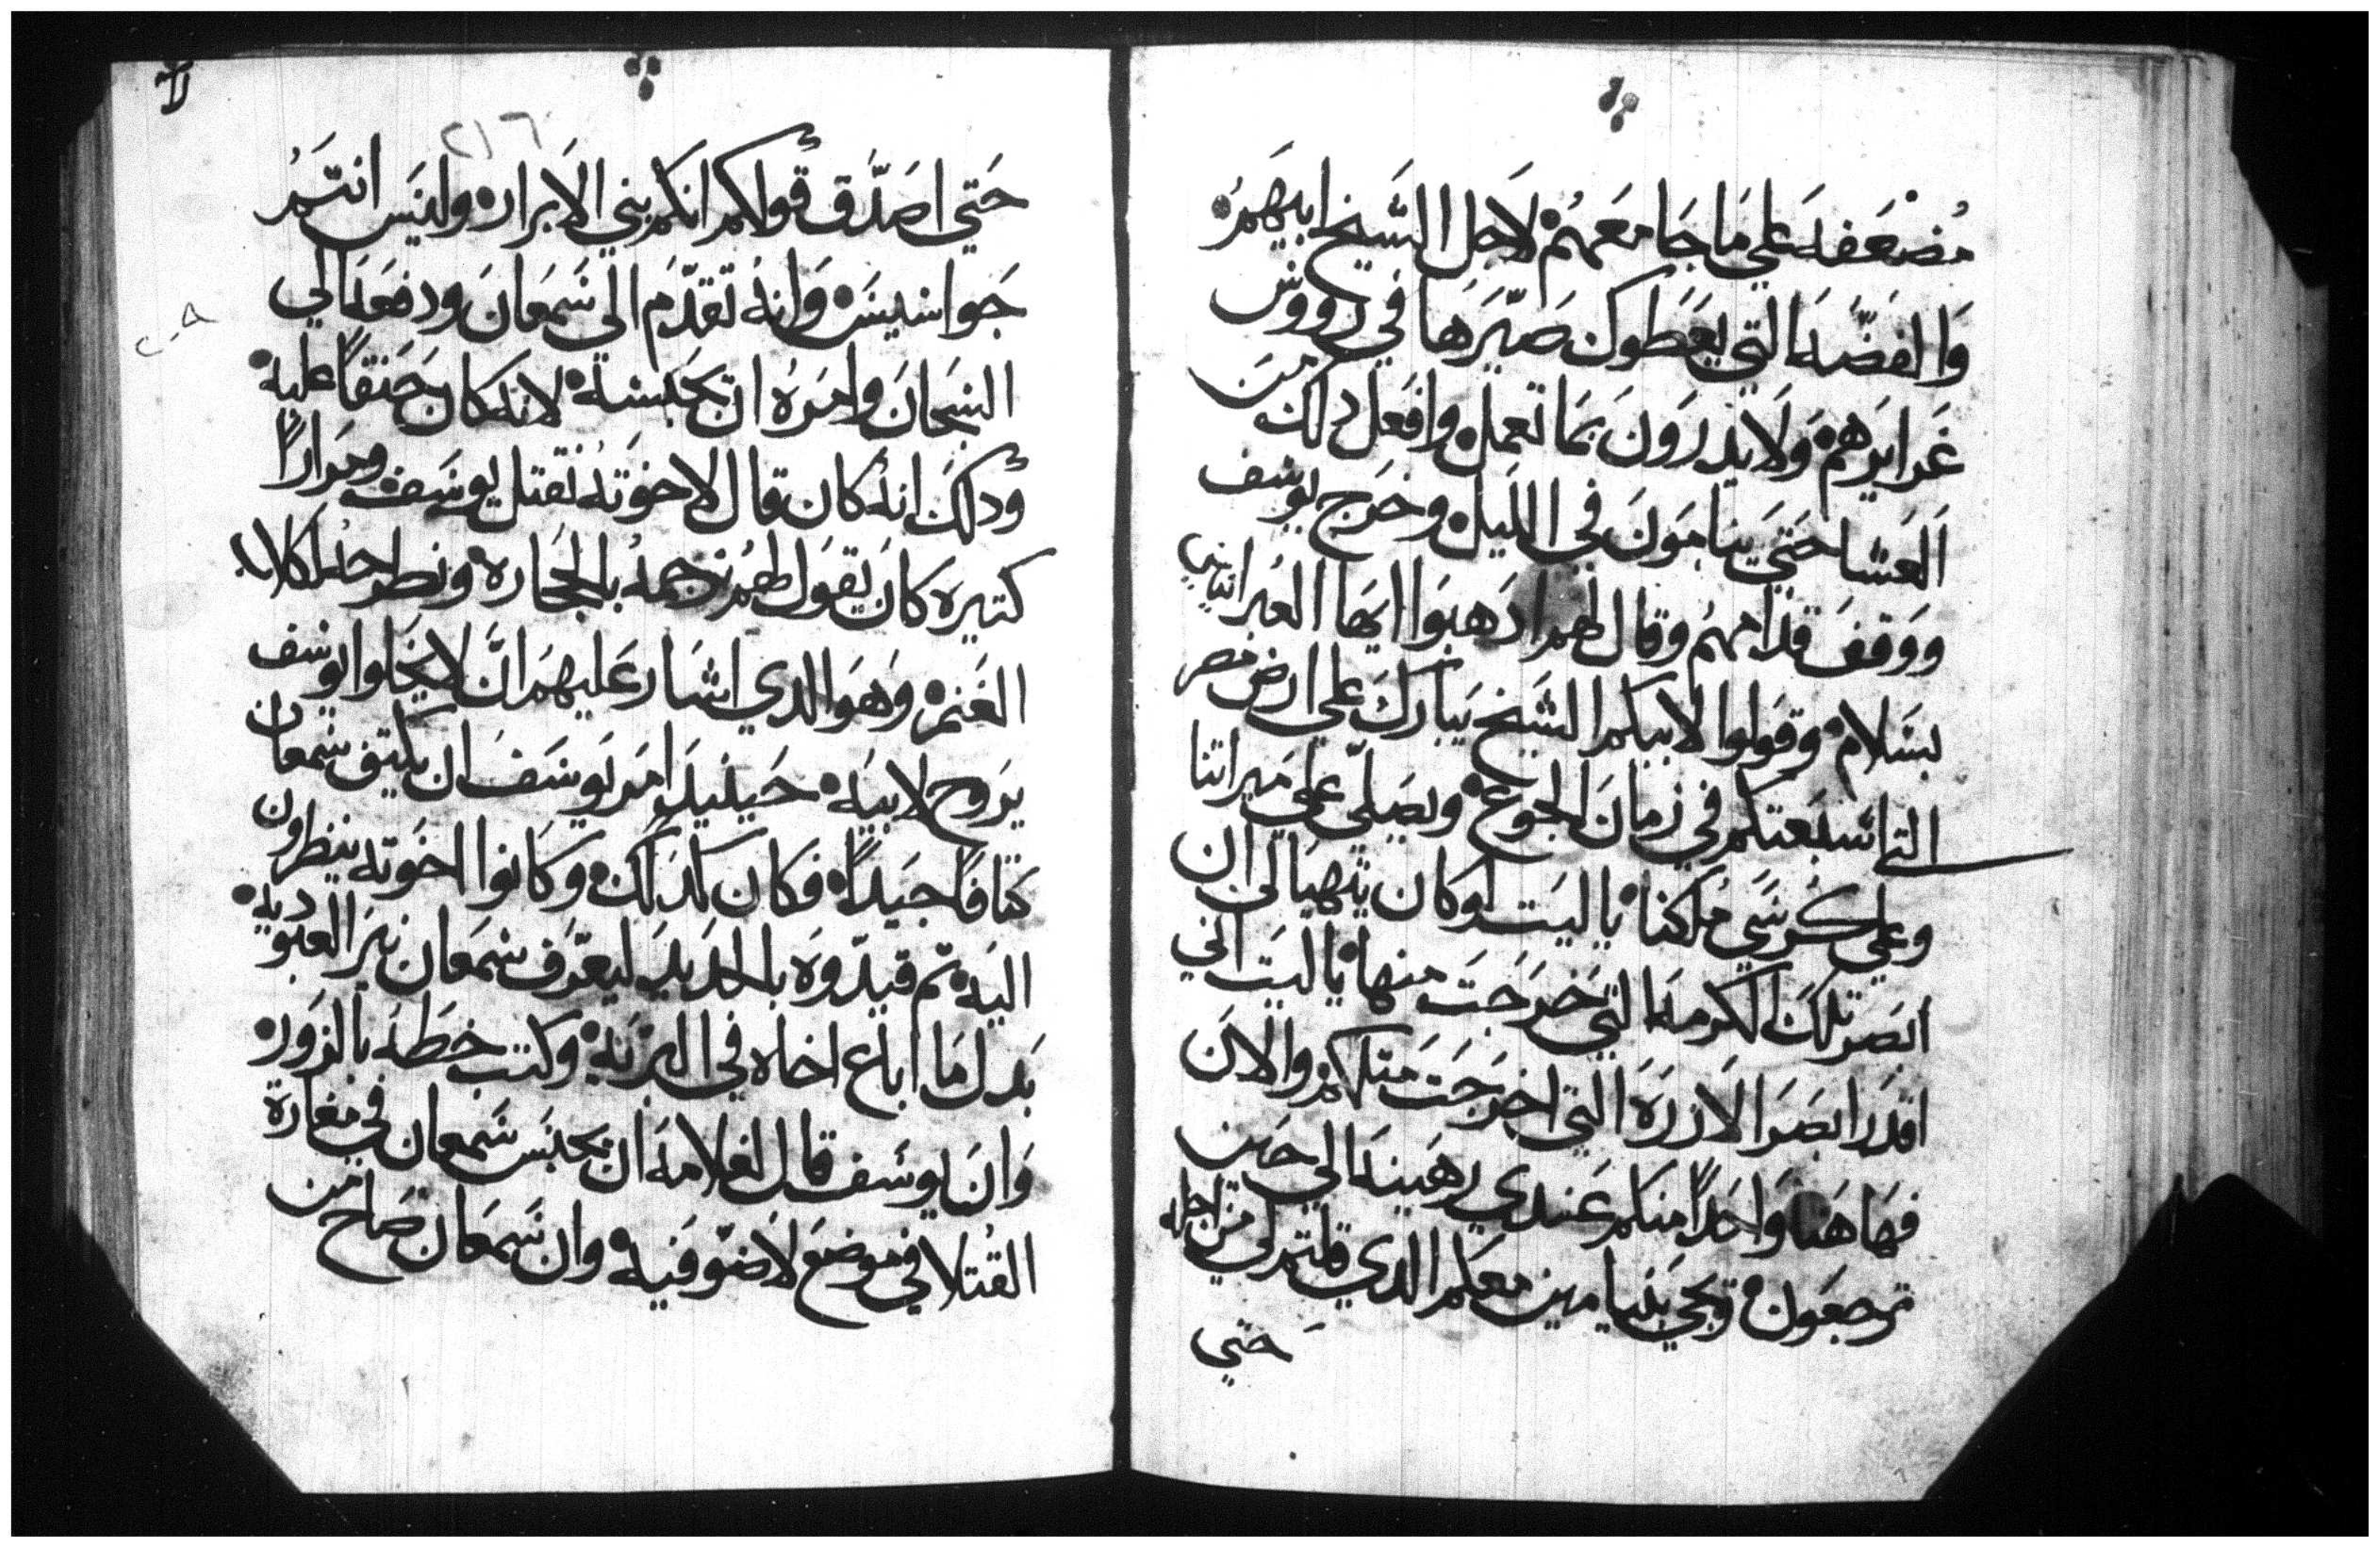 مُضعَفه علي مَا جَا معَهمُ لاَجل الشيخ ابيهمُ
وَالفضّه التي يعَطوك صَيّرَها في رووس
غَرايَرهم وَلا يدرَونَ بَما تعمَل وافعَل دلك من
العَشا حَتيَ ينامَونَ في الليَل وخرَج يوسَف
ووَقفَ قدامهمُ وقال لهمَ ادَهبَوا ايها العَبرانيين
بسَلام وقوَلوا لابيكم الشَيخ يَبارك علي ارض مصر
التي اشبعَتكم في زمان الجَوع ويصَلّي علي ميراتنا
وعلي كرسَي مُلكنا يا ليَت لوكان يتهيَا لي ان
ابصَر تلك الكرمه التي خرَجَت منها يا ليَت اني
اقدَر ابصَر الارزه التي اخرجَت متلكم والان
فهَاهنا وَاحدًا منكم عَندي رهَينه الي حين
ترجعَون وتجي بنيامين معكم الدي قلتم لي من اجله
حَتي
٢١٦
حَتي اصَدّق قولكم انكم بني الابرار وليَس انتَمُ
جَواسيسَ وَانهُ تقدّم الي شمعَان ودفعَه الي
السَجانَ وامَرهُ ان يحَبسَه لانه كان حَنقاً عليه
ودلك انه كان قال لاخوَته نقتل يوسَف ومرَاراً
كتيرَه كان يَقوَل لهمُ نرجمهُ بالحجَاره ونطرحه لكلاب
الغَنم وَهوَ الدي اشَار عَليهمَ انّ لا يخَلوا يوسف
يَروح لابيَه حَينيَد امَر يوسَف ان يكتف شمعان
كتافاً جيَداً فكان كدَلك وَكانوا اخوَته ينظرون
اليَه تم قيدّوَه بالحديَد ليعَرف شمعَان نيَر العبَوديه
بَدل مَا اباع اخاه في البرّيه وكتب خطَه بالزوَر
وَانَ يوسَف قال لغلامهَ ان يحبَس شمعان في مغارة
القُتلا في موضعَ لاَ ضوَ فيَه وان شمعَان صَاح من